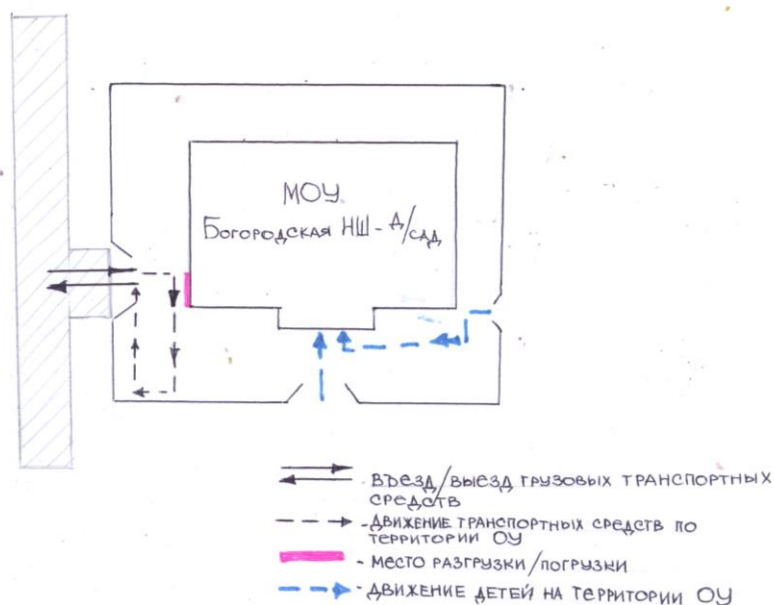 МОУ
Богородская НШ - Д/САД
ВЪЕЗД/ВЫЕЗД ГРУЗОВЫХ ТРАНСПОРТНЫХ
СРЕДСТВ
- ДВИЖЕНИЕ ТРАНСПОРТНЫХ СРЕДСТВ ПО
ТЕРРИТОРИИ ОУ
- МЕСТО РАЗГРУЗКИ/ПОГРУЗКИ
- ДВИЖЕНИЕ ДЕТЕЙ НА ТЕРРИТОРИИ ОУ